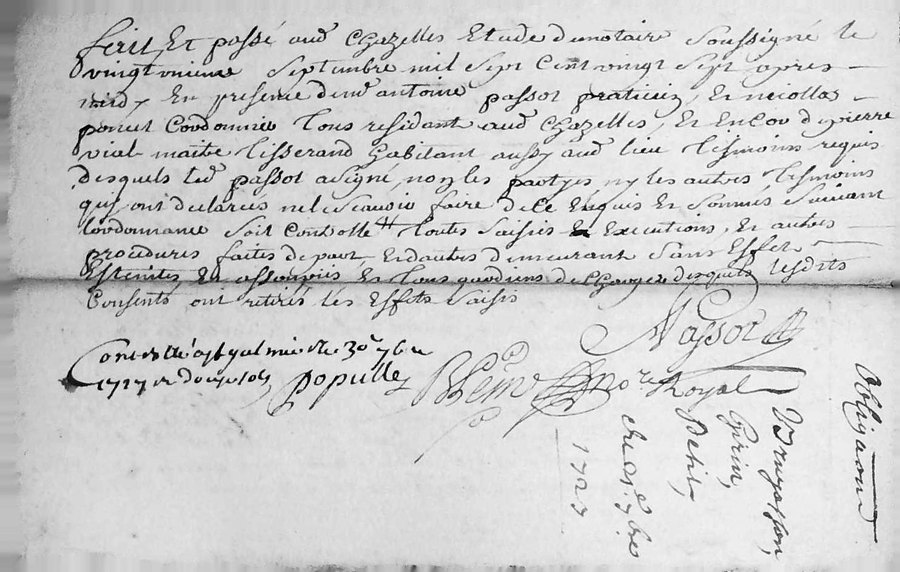 fait Et passé aud Chazelles Etude du notaire soussigné le
vingtunieme septembre mil sept Cent vingt sept apres
midy En presence de me antoine passot praticien, Et nicollas
poncet Cordonnier tous residant aud Chazelles, Et Encor de pierre
vial maitre tisserand habitant aussy aud lieu tesmoins requis
desquels led passot a signé, non les partyes, ny les autres tesmoins
quy ont declarés ne le scavoir faire de ce Enquis Et sommés suivant
Lordonnance soit controllé toutes saisies Et Executions, Et autres
procedures faites de part Et dautres demeurant sans Effet
Esteintes Et assoupies Et tous gardiens deschargés desquels lesdits
Consents ont retirés les Effets saisis
Passot
Controllé a St galmier le 30e 7bre
1727 R douze sols
populle
no.re Royal
Obligaon
Girin,
Petit,
du 21e 7bre
1727